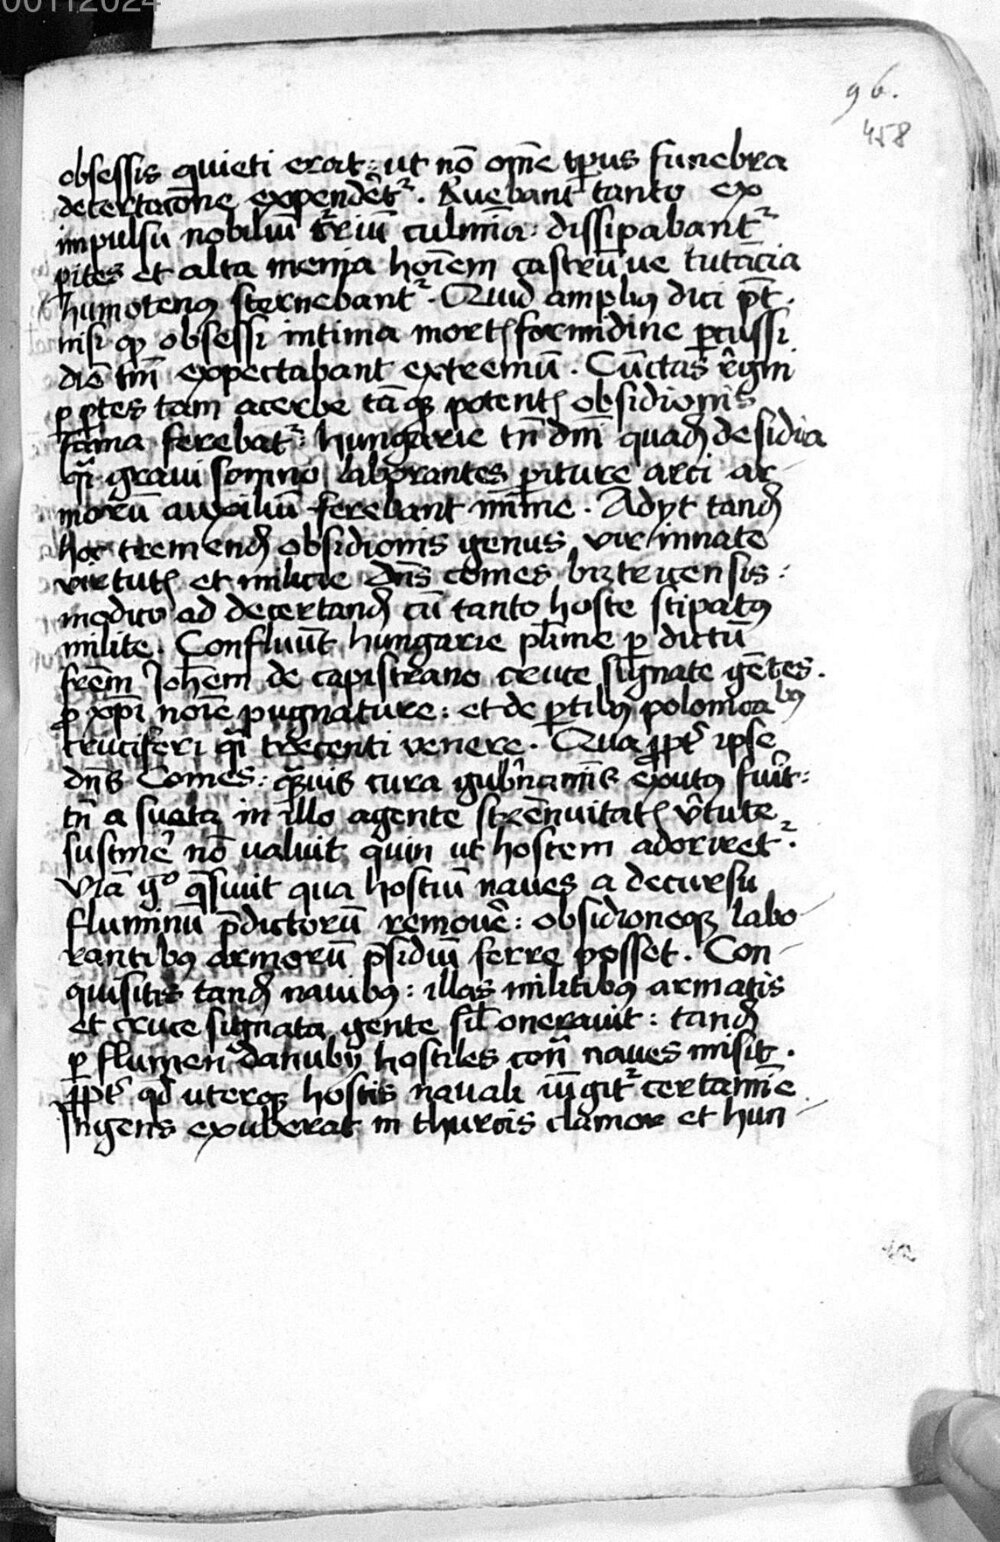 00112024
96.
458
obsessis quieti erat: ut nō om̄e tp̱us funebra
decertacōne expendēt᷑. Ruebant tanto ex
impulsu nobiliū t᷑riū culmīa: dissipabant᷑
pites et alta menia: hoīem castrū ue tutācia
humotenꝰ sternebant᷑. Quid ampliꝰ dici pt̄.
nisi ꝙ obsessi intima mortꝭ formidine ꝑcussi
diē tm̄ expectabant extremū. Cūctas r̄gni
ꝑ ꝑtes tam acerbe tāqꝫ potentꝭ obsidionis
fama ferebat᷑: hungarie tn̄ dn̄i quadꝫ desidia
q̄i graui somno laborantes ꝑiture arci ar-
morū auxiliū ferebant mīme. Adijt tandꝫ
hoc tremendꝫ obsidionis genus vir innate
virtutꝭ et milicie dn̄s comes biztricensis:
modico ad decertandꝫ cū tanto hoste stipatꝰ
milite. Confluūt hungarie pl̄ime ꝑ dictū
frēm Joh̄em de capistrano cruce signate gētes.
ꝓ xp̄i noīe pugnature: et de ꝑtibꝰ polonica
bꝰ
cruciferi q̄i trecenti venere. Qua ꝓpt᷑ ipse
dn̄s Comes: q̄uis cura gub̄naminis exutꝰ fuīt:
tn̄ a sueta in illo agente strēnuitatꝭ v̄tute
sustine᷑ nō ualuit quin ut hostem adoriret᷑.
Viā gͦ q̄siuit qua hostiū naues a decursu
fluminū p̄dictorū remoue᷑: obsidioneqꝫ labo-
rantibꝰ armorū p̄sidiū ferre posset. Con-
quisitis tandꝫ nauibꝰ: illas militibꝰ armatis
et cruce signata gente sil̄ onerauit: tandꝫ
ꝑ flumen danubij hostiles con̄ naues misit.
ꝓpt᷑ qd̄ uterqꝫ hostis nauali iūgit᷑ certamīe
Ingens exuberat in thurcis clamor et hun-